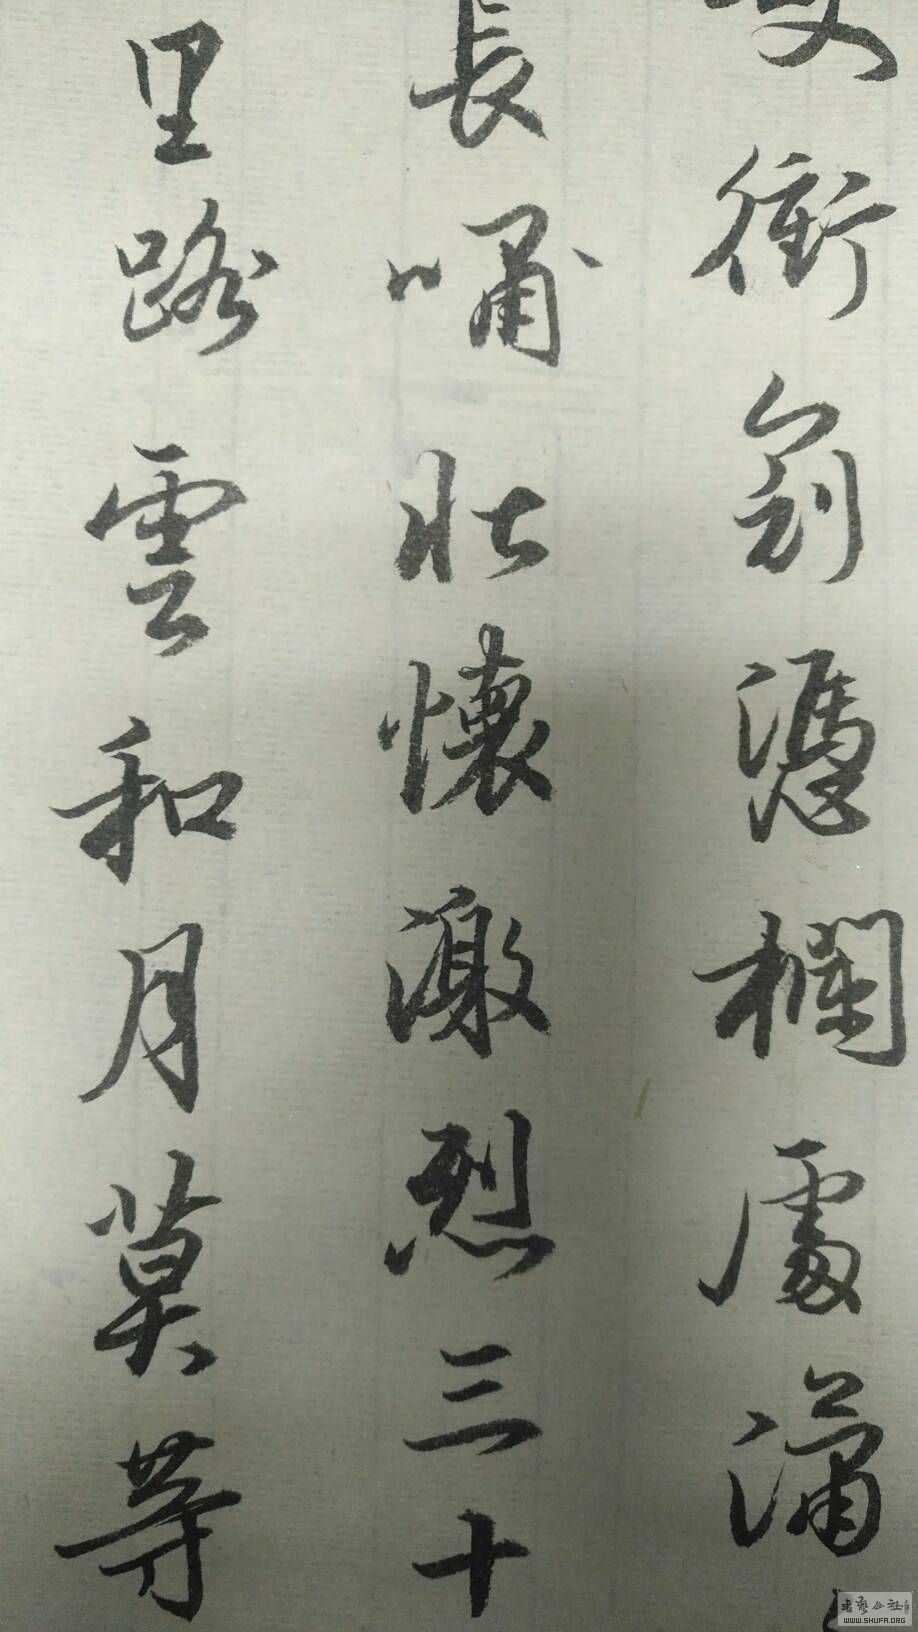 衝冠憑欄處瀟
長嘯壯懷激烈三十
里路雲和月莫等
书艺公社
WWW.SHUFA.ORG